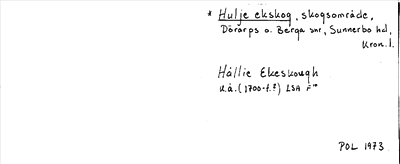 * Hulje ekskog, skogsområde,
Dörarps o. Berga snr, Sunnerbo hd,
Kron. l.
Hållie Ekeskough
u.å. (1700-t.?) LSA F
POL 1973